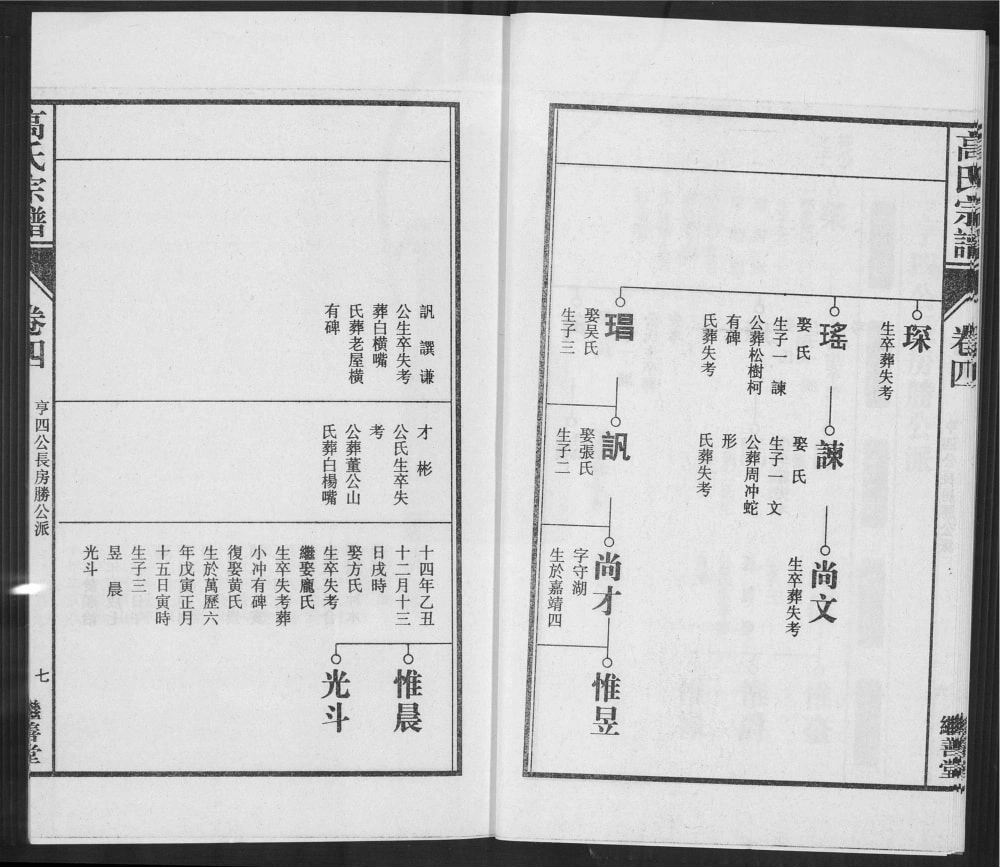 高氏宗譜
卷四
繼善堂
琛
生卒葬失考
瑤
娶 氏
生子一 諫
公葬松樹柯
有碑
氏葬失考
諫
娶 氏
生子一 文
公葬周冲蛇
形
氏葬失考
尚文
生卒葬失考
琩
娶吴氏
生子三
訊
娶張氏
生子二
尚才
字守湖
生於嘉靖四
惟昱
訊 譔 谦
公生卒失考
葬白橫嘴
氏葬老屋橫
有碑
才 彬
公氏生卒失
考
公葬董公山
氏葬白楊嘴
十四年乙丑
十二月十三
日戌時
娶方氏
生卒失考
繼娶龐氏
生卒失考葬
小冲有碑
復娶黄氏
生於萬歷六
年戊寅正月
十五日寅時
生子三
昱 晨
光斗
惟晨
光斗
高氏宗譜
卷四
亨四公長房勝公派
七
繼善堂